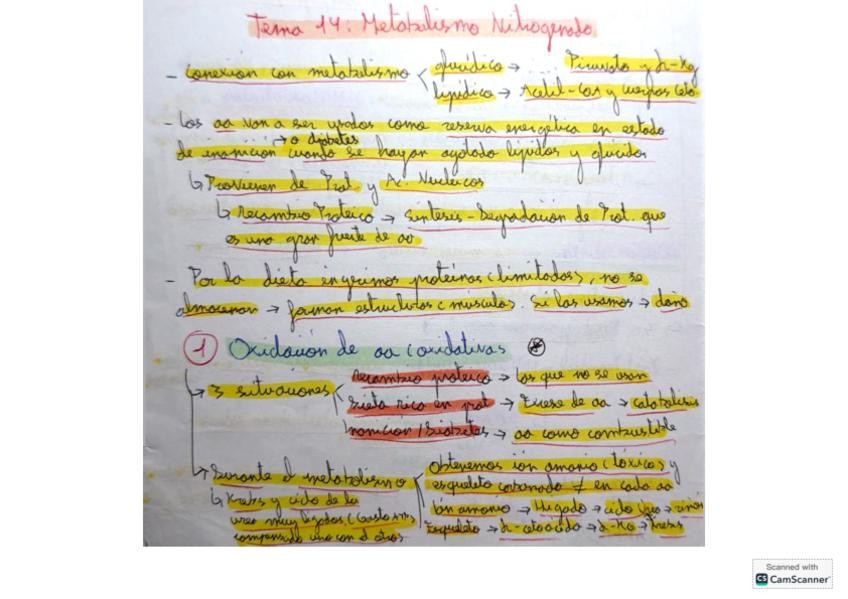 Tema 14: Metabolismo Nitrogenado
- Conexión con metabolismo < glucídico → Piruvato y α-Kg
lipídico → Acetil-CoA y cuerpos ceto
- Los aa van a ser usados como reserva energética en estado
→ o diabetes
de inanición cuando se hayan agotado lípidos y glúcidos
↳ Provienen de Prot. y Ac. Nucleicos
↳ Recambio Proteico → Síntesis-Degradación de Prot. que
es una gran fuente de aa
- Por la dieta ingerimos proteínas (limitadas), no se
almacenan → forman estructuras (músculos). Si las usamos → daño
1 Oxidación de aa (oxidativas)
→ 3 situaciones < Recambio proteico → Los que no se usan
Dieta rica en prot → Exceso de aa → catabolisis
Inanición / Diabetes → aa como combustible
→ Durante el metabolismo < Obtenemos ión amonio (tóxico) y
esqueleto carbonado ≠ en cada aa
↳ Krebs y ciclo de la
urea muy ligados. (Gasto
compensado uno con el otro)
Ión amonio → Hígado → ciclo Urea →
Esqueleto → α-cetoácido → α-KG → Krebs
Scanned with
CS CamScanner